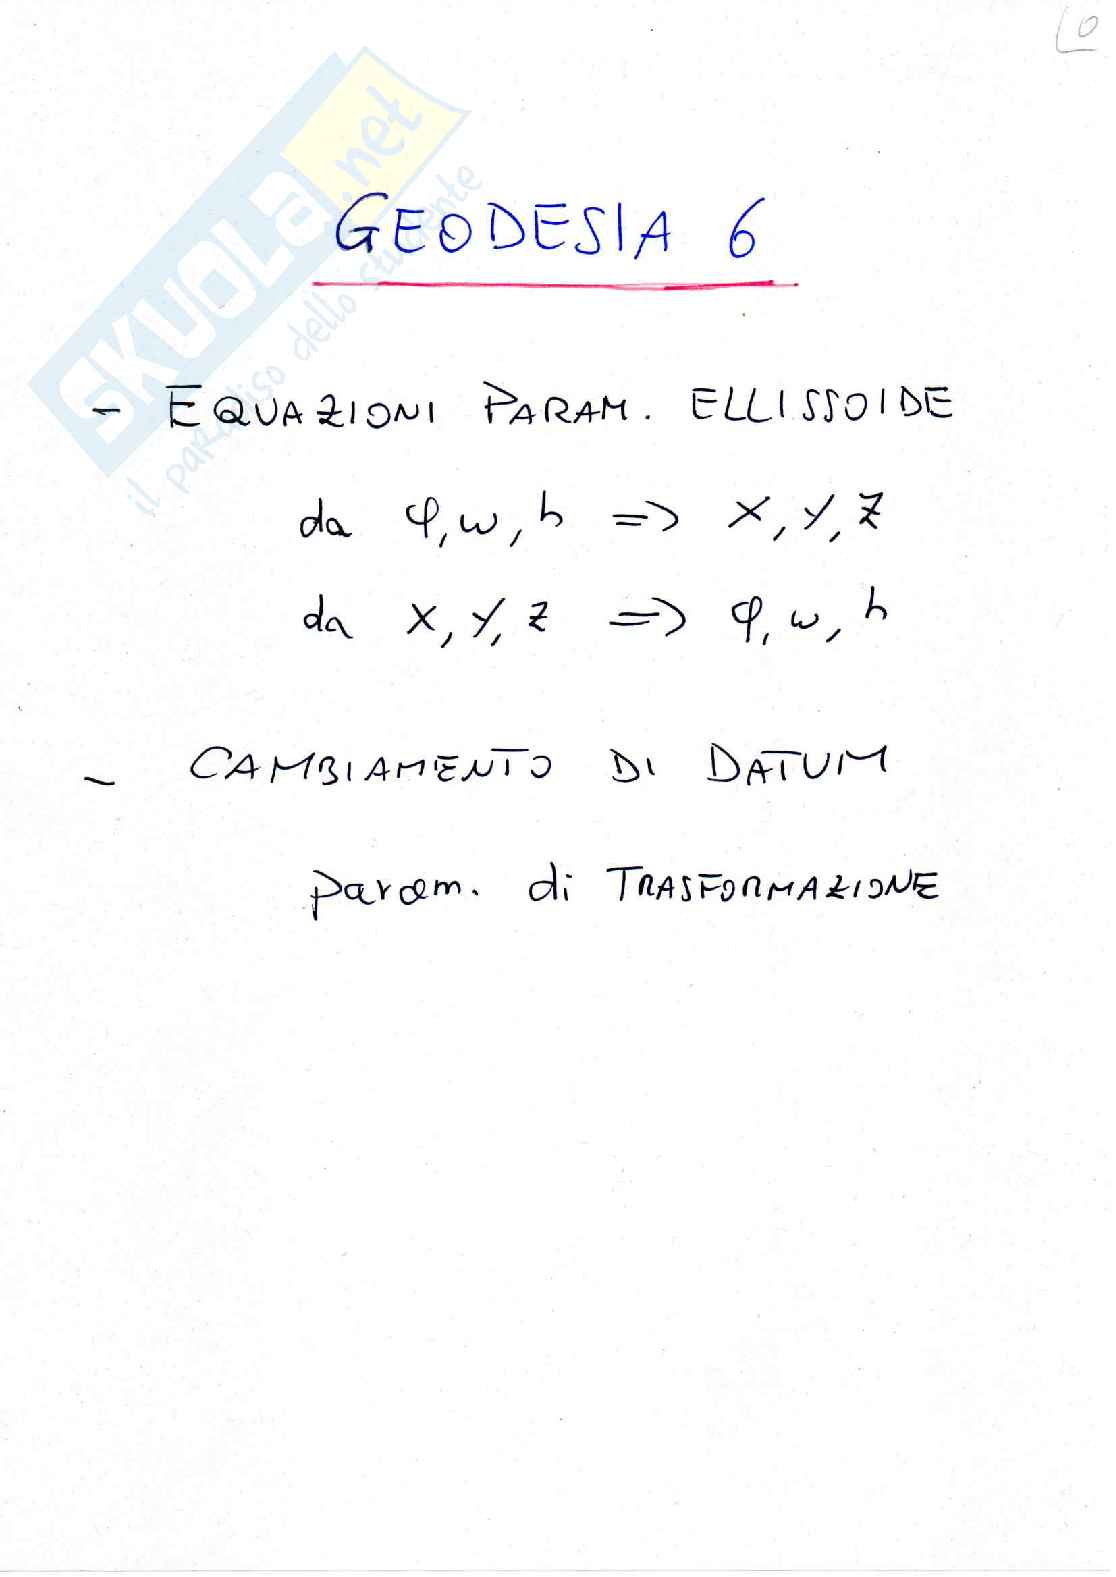 0
SKUOLa.net
il paradiso dello studente
GEODESIA 6
- EQUAZIONI PARAM. ELLISSOIDE
da φ, ω, h => X, Y, Z
da X, Y, Z => φ, ω, h
- CAMBIAMENTO DI DATUM
param. di TRASFORMAZIONE